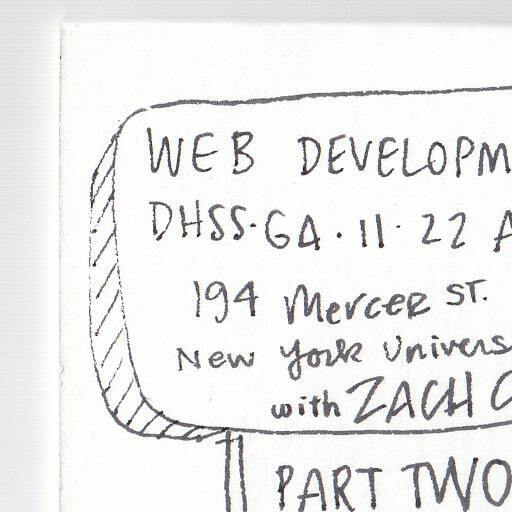 WEB DEVELOPM
DHSS·GA·11·22 A
194 Mercer ST.
New York Univers
with ZACH C
PART TWO